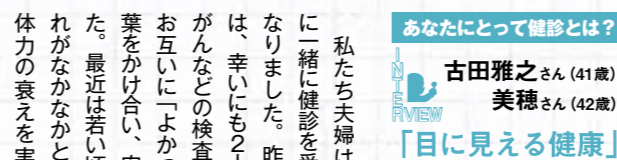 あなたにとって健診とは？
INTERVIEW
古田雅之さん（41歳）
美穂さん（42歳）
「目に見える健康」
私たち夫婦は
に一緒に健診を受
なりました。昨
は、幸いにも2
がんなどの検査
お互いに「よかっ
葉をかけ合い、
た。最近は若い
れがなかなかと
体力の衰えを実